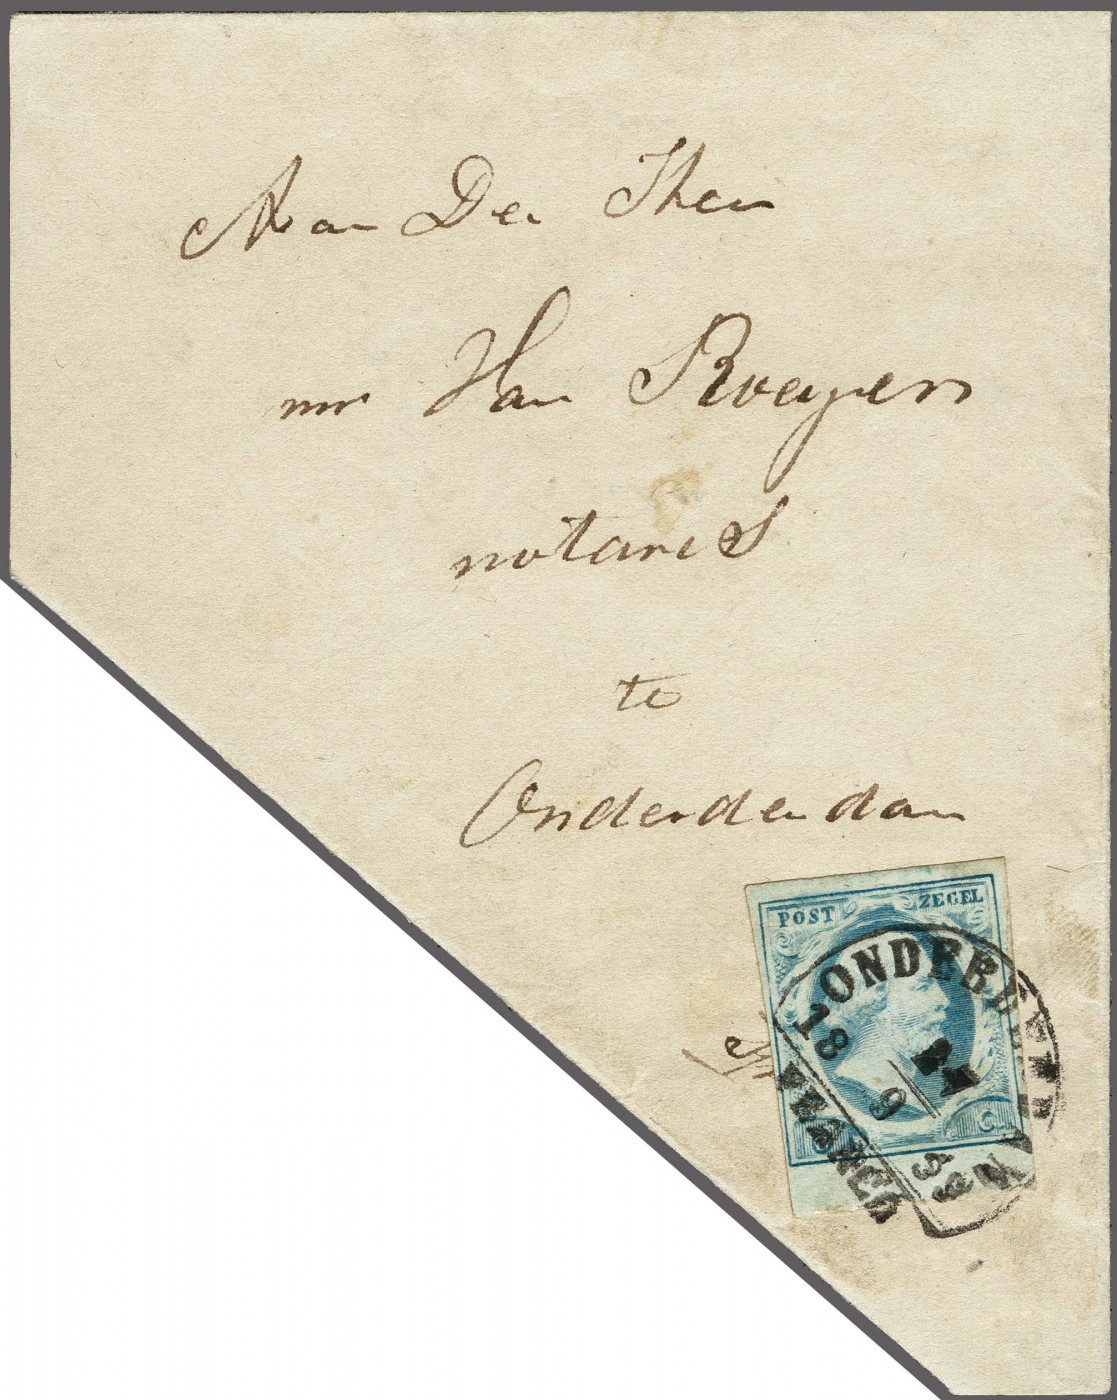 Aan Den Heer
mr Van Royen
notaris
te
Onderdendam
POST ZEGEL
ONDERDEND
18 9 59
FRANCO